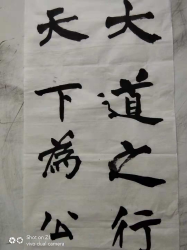 大道之行
天下為公
Shot on Z1
Vivo dual camera